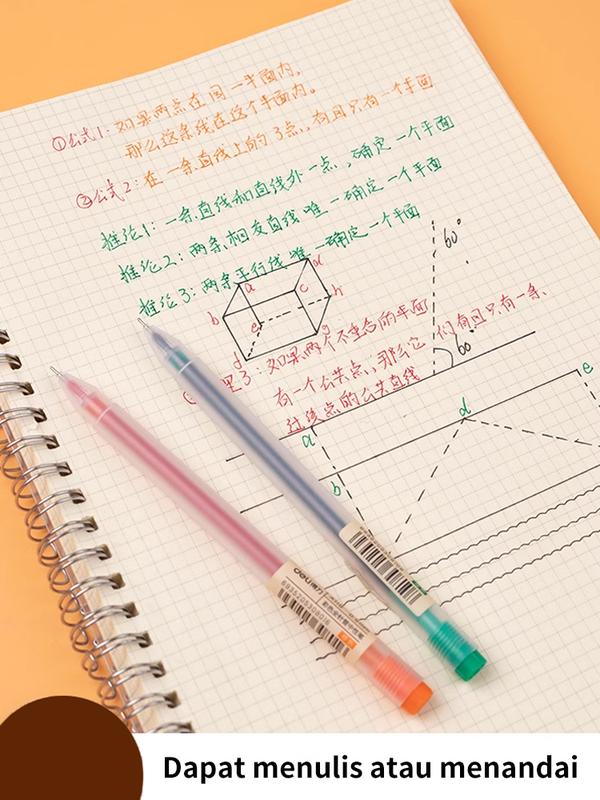 ①公式1:如果两点在同一平面内,
那么这条线在这个平面内。
②公式2:在一条直线上的3点,有且只有一个平面
推论1:一条直线和直线外一点,确定一个平面
推论2:两条相交直线唯一确定一个平面
推论3:两条平行线唯一确定一个平面
60°
a
d
b
c
e
h
g
d
理3:如果两个不重合的平面
们有且只有一条
有一个公共点,那么它
过该点的公共直线
60°
a
b
d
e
deli
6935205308078
Dapat menulis atau menandai